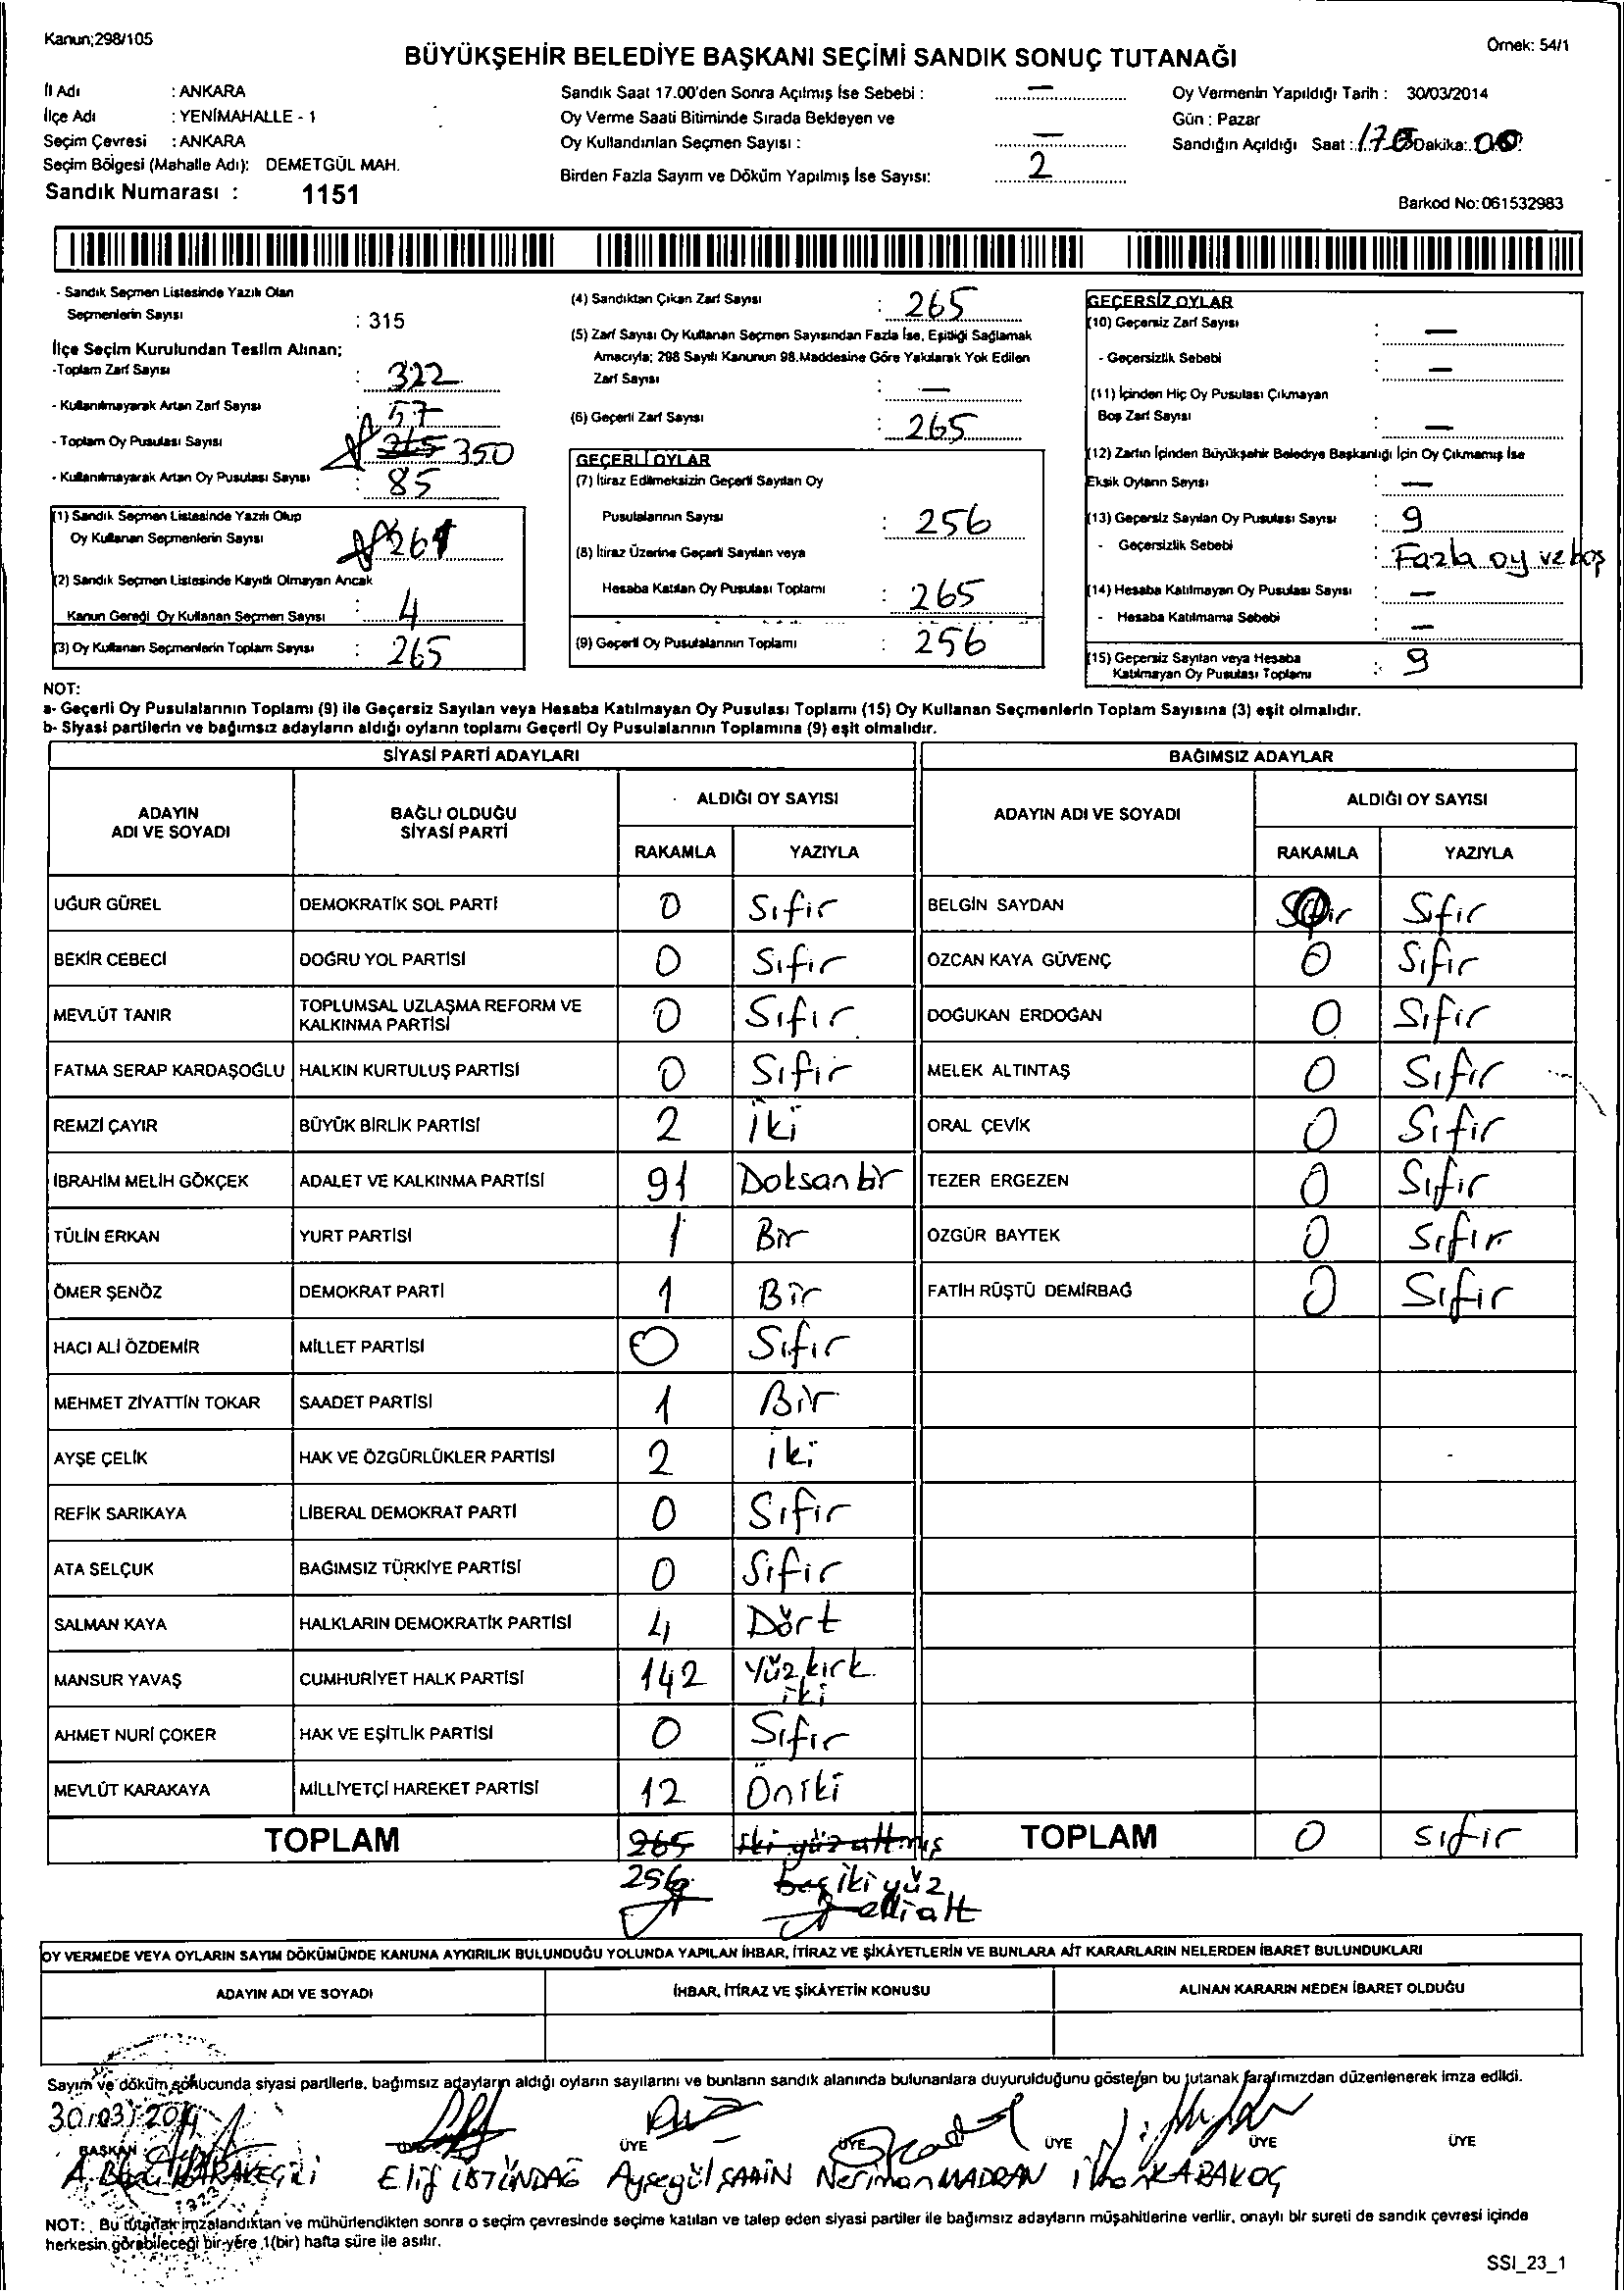 Kanun;298/105
Örnek: 54/1
BÜYÜKŞEHİR BELEDİYE BAŞKANI SEÇİMİ SANDIK SONUÇ TUTANAĞI
İl Adı : ANKARA
İlçe Adı : YENİMAHALLE - 1
Seçim Çevresi : ANKARA
Seçim Bölgesi (Mahalle Adı): DEMETGÜL MAH.
Sandık Numarası : 1151
Sandık Saat 17.00'den Sonra Açılmış İse Sebebi : —
Oy Verme Saati Bitiminde Sırada Bekleyen ve
Oy Kullandırılan Seçmen Sayısı : —
Birden Fazla Sayım ve Döküm Yapılmış İse Sayısı: 2
Oy Vermenin Yapıldığı Tarih : 30/03/2014
Gün : Pazar
Sandığın Açıldığı Saat : Dakika: 00
Barkod No:061532983
- Sandık Seçmen Listesinde Yazılı Olan
Seçmenlerin Sayısı : 315
İlçe Seçim Kurulundan Teslim Alınan;
-Toplam Zarf Sayısı : 322
- Kullanılmayarak Artan Zarf Sayısı : 57
- Toplam Oy Pusulası Sayısı : 265 350
- Kullanılmayarak Artan Oy Pusulası Sayısı : 85
(1) Sandık Seçmen Listesinde Yazılı Olup
Oy Kullanan Seçmenlerin Sayısı 261
(2) Sandık Seçmen Listesinde Kayıtlı Olmayan Ancak
Kanun Gereği Oy Kullanan Seçmen Sayısı : 4
(3) Oy Kullanan Seçmenlerin Toplam Sayısı : 265
(4) Sandıktan Çıkan Zarf Sayısı : 265
(5) Zarf Sayısı Oy Kullanan Seçmen Sayısından Fazla İse, Eşitliği Sağlamak
Amacıyla; 298 Sayılı Kanunun 98.Maddesine Göre Yakılarak Yok Edilen
Zarf Sayısı : —
(6) Geçerli Zarf Sayısı : 265
GEÇERLİ OYLAR
(7) İtiraz Edilmeksizin Geçerli Sayılan Oy
Pusulalarının Sayısı : 256
(8) İtiraz Üzerine Geçerli Sayılan veya
Hesaba Katılan Oy Pusulası Toplamı : 265
(9) Geçerli Oy Pusulalarının Toplamı : 256
GEÇERSİZ OYLAR
(10) Geçersiz Zarf Sayısı : —
- Geçersizlik Sebebi : —
(11) İçinden Hiç Oy Pusulası Çıkmayan
Boş Zarf Sayısı : —
(12) Zarfın İçinden Büyükşehir Belediye Başkanlığı İçin Oy Çıkmamış İse
Eksik Oyların Sayısı : —
(13) Geçersiz Sayılan Oy Pusulası Sayısı : 9
- Geçersizlik Sebebi : Fazla oy ve boş
(14) Hesaba Katılmayan Oy Pusulası Sayısı : —
- Hesaba Katılmama Sebebi : —
(15) Geçersiz Sayılan veya Hesaba
Katılmayan Oy Pusulası Toplamı : 9
NOT:
a- Geçerli Oy Pusulalarının Toplamı (9) ile Geçersiz Sayılan veya Hesaba Katılmayan Oy Pusulası Toplamı (15) Oy Kullanan Seçmenlerin Toplam Sayısına (3) eşit olmalıdır.
b- Siyasi partilerin ve bağımsız adayların aldığı oyların toplamı Geçerli Oy Pusulalarının Toplamına (9) eşit olmalıdır.
SİYASİ PARTİ ADAYLARI BAĞIMSIZ ADAYLAR
ADAYIN ADI VE SOYADI BAĞLI OLDUĞU SİYASİ PARTİ ALDIĞI OY SAYISI ADAYIN ADI VE SOYADI ALDIĞI OY SAYISI
RAKAMLA YAZIYLA RAKAMLA YAZIYLA
UĞUR GÜREL DEMOKRATİK SOL PARTİ 0 Sıfır BELGİN SAYDAN 0 Sıfır
BEKİR CEBECİ DOĞRU YOL PARTİSİ 0 Sıfır ÖZCAN KAYA GÜVENÇ 0 Sıfır
MEVLÜT TANIR TOPLUMSAL UZLAŞMA REFORM VE KALKINMA PARTİSİ 0 Sıfır DOĞUKAN ERDOĞAN 0 Sıfır
FATMA SERAP KARDAŞOĞLU HALKIN KURTULUŞ PARTİSİ 0 Sıfır MELEK ALTINTAŞ 0 Sıfır
REMZİ ÇAYIR BÜYÜK BİRLİK PARTİSİ 2 iki ORAL ÇEVİK 0 Sıfır
İBRAHİM MELİH GÖKÇEK ADALET VE KALKINMA PARTİSİ 91 Doksan bir TEZER ERGEZEN 0 Sıfır
TÜLİN ERKAN YURT PARTİSİ 1 Bir ÖZGÜR BAYTEK 0 Sıfır
ÖMER ŞENÖZ DEMOKRAT PARTİ 1 Bir FATİH RÜŞTÜ DEMİRBAĞ 0 Sıfır
HACI ALİ ÖZDEMİR MİLLET PARTİSİ 0 Sıfır
MEHMET ZİYATTİN TOKAR SAADET PARTİSİ 1 Bir
AYŞE ÇELİK HAK VE ÖZGÜRLÜKLER PARTİSİ 2 iki
REFİK SARIKAYA LİBERAL DEMOKRAT PARTİ 0 Sıfır
ATA SELÇUK BAĞIMSIZ TÜRKİYE PARTİSİ 0 Sıfır
SALMAN KAYA HALKLARIN DEMOKRATİK PARTİSİ 4 Dört
MANSUR YAVAŞ CUMHURİYET HALK PARTİSİ 142 Yüz kırk iki
AHMET NURİ ÇOKER HAK VE EŞİTLİK PARTİSİ 0 Sıfır
MEVLÜT KARAKAYA MİLLİYETÇİ HAREKET PARTİSİ 12 Oniki
TOPLAM 265 iki yüz altmış TOPLAM 0 sıfır
256 beş iki yüz
elli altı
OY VERMEDE VEYA OYLARIN SAYIM DÖKÜMÜNDE KANUNA AYKIRILIK BULUNDUĞU YOLUNDA YAPILAN İHBAR, İTİRAZ VE ŞİKÂYETLERİN VE BUNLARA AİT KARARLARIN NELERDEN İBARET BULUNDUKLARI
ADAYIN ADI VE SOYADI İHBAR, İTİRAZ VE ŞİKÂYETİN KONUSU ALINAN KARARIN NEDEN İBARET OLDUĞU
Sayım ve döküm sonucunda siyasi partilerle, bağımsız adayların aldığı oyların sayılarını ve bunların sandık alanında bulunanlara duyurulduğunu gösteren bu tutanak tarafımızdan düzenlenerek imza edildi.
30/03/2014
BAŞKAN ÜYE ÜYE ÜYE ÜYE ÜYE
Elif ÜSTÜNDAĞ Ayşegül ŞAHİN Neriman MADRAN İlhan KABAKOÇ
NOT: Bu tutanak imzalandıktan ve mühürlendikten sonra o seçim çevresinde seçime katılan ve talep eden siyasi partiler ile bağımsız adayların müşahitlerine verilir, onaylı bir sureti de sandık çevresi içinde
herkesin görebileceği bir yere 1(bir) hafta süre ile asılır.
SSI_23_1